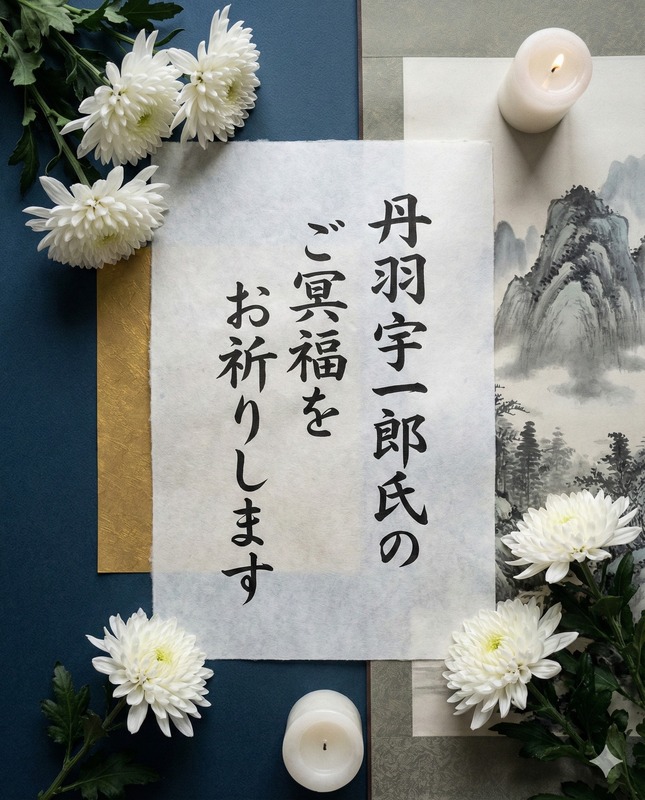 丹羽宇一郎氏の
ご冥福を
お祈りします